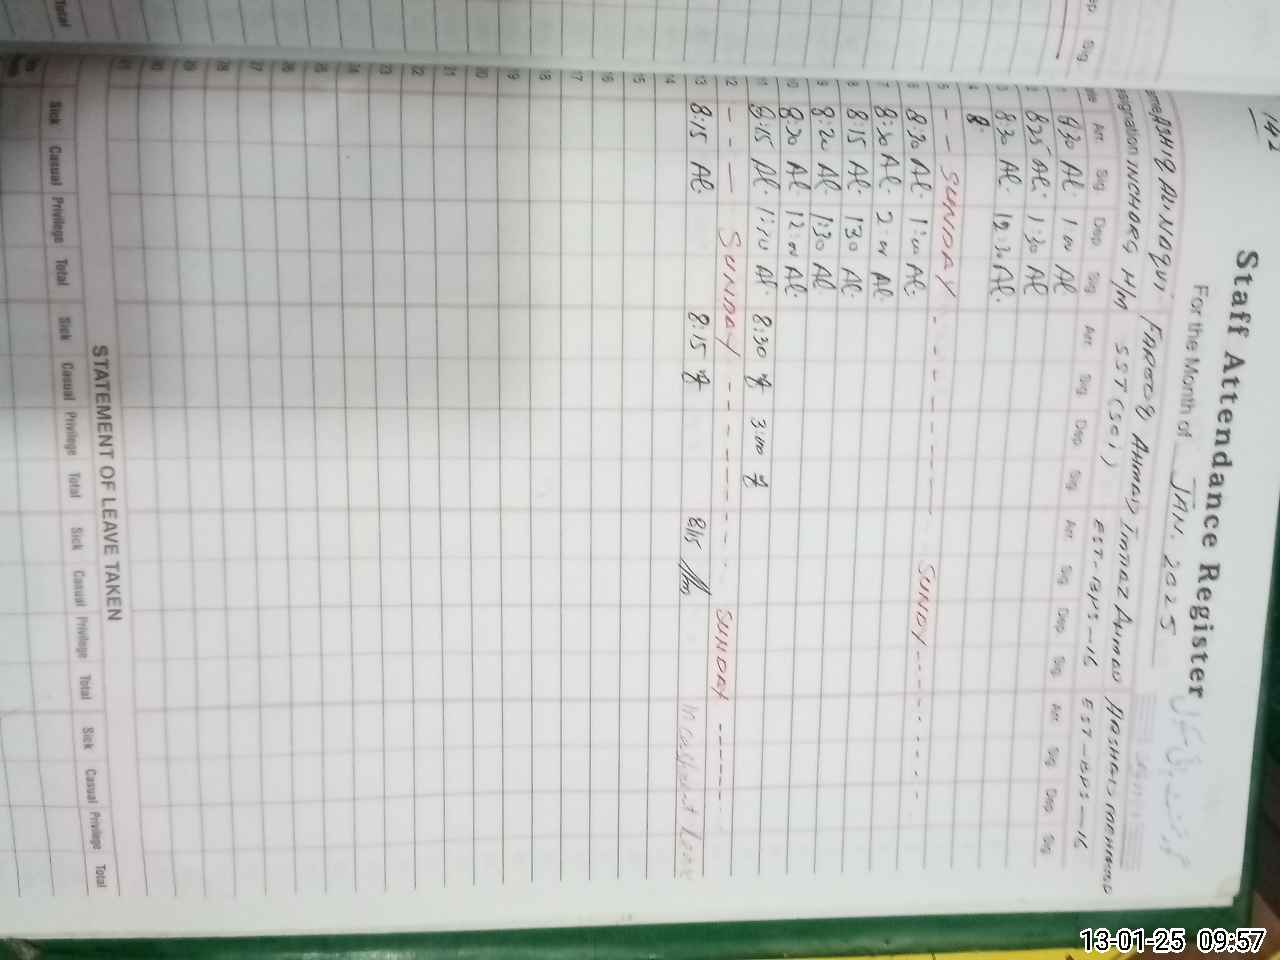 142
Staff Attendance Register
For the Month of JAN. 2025
ASHIQ ALI NAQVI FAROOQ AHMAD IMTIAZ AHMAD RASHEED
INCHARG H/M SST (SCI) EST-BPS-16 EST-BPS-16
Arr. Sig Dep Sig Arr. Sig. Dep. Sig. Arr. Sig. Dep Sig. Arr. Sig. Dep Sig.
1 830 Al. 1 00 Al
2 825 Al. 1:30 Al
3 8:30 Al. 12:30 Al.
4 8.
5 - - SUNDAY - - - - - - - SUNDY - - - - - -
6 8:30 Al. 1:00 Al.
7 8:30 Al. 2:00 Al
8 8:15 Al. 130 Al.
9 8:20 Al 1:30 Al
10 8:30 Al 12:00 Al.
11 8:15 Al. Al. 8:30 3:00
12 - - - SUNDAY - - - - - - - SUNDAY - - - - - -
13 8:15 Al 8:15 8:15
14
15
16
17
18
19
20
21
22
23
24
25
26
27
28
29
30
31
STATEMENT OF LEAVE TAKEN
Sick Casual Privilege Total Sick Casual Privilege Total Sick Casual Privilege Total Sick Casual Privilege Total
13-01-25 09:57